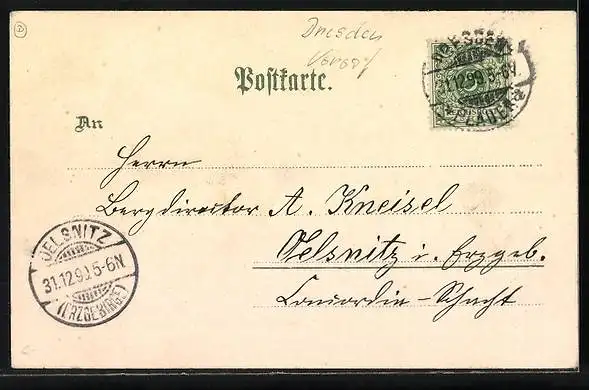 Dresden
Vorort
DRESDEN
31.12.99.5-6N.
PLAUEN
Postkarte.
An
Herrn
Bergdirector A. Kneisel
Oelsnitz i. Erzgeb.
Concordia-Schacht
OELSNITZ
31.12.99.5-6N
(ERZGEBIRGE)